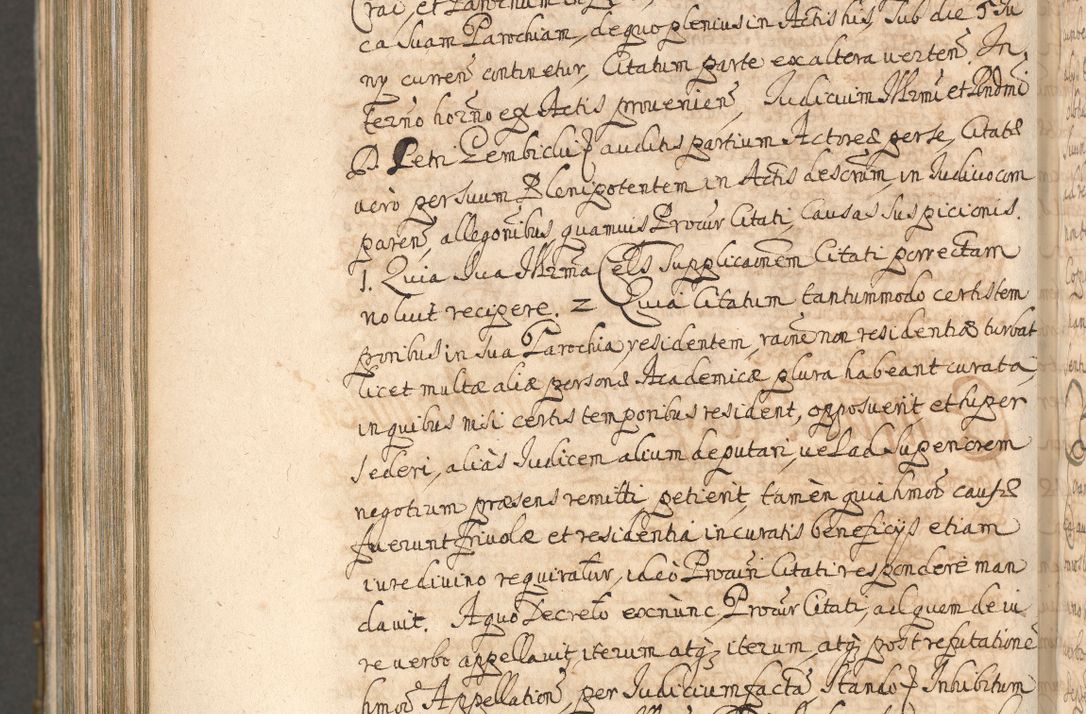 ca suam Parochiam, de quo plenius in Actis his, sub die 9 Iu
ny curren continetur, Citatum parte ex altera verten. In
terno horno ex Actis provenien, Iudicium Illrmi et Rndmi
D. Petri Gembicki auditis partium Actorea per se, Citatæ
vero per suum Plenipotentem in Actis descrum, in Iudicio com
paren, allegonibus quamvis Procur Citati, Causas suspicionis.
1. Quia Sua Illrma Cels Supplicaonem Citati porrectam
noluit recipere. 2 Quia Citatum tantummodo certis tem
poribus in sua Parochia residentem, raone non residentiæ turbat
licet multæ aliæ personæ Academicæ plura habeant curata,
in quibus nisi certis temporibus resident, opposuerit et super
sederi, aliàs Iudicem alium deputari, vel ad Superiorem
negotium præsens remitti petierit, tamèn quia hmoi causæ
fuerunt frivolæ et residentia in curatis beneficijs etiam
iure divino requiratur, ideò Procurem Citati respondere man
davit. A quo Decreto exnùnc Procur Citati, ad quem de vi
re verbo appellavit, iterum atq, iterum atq, post refutatione
hmoi Appellation, per Iudicium facta Stando Inhibitum